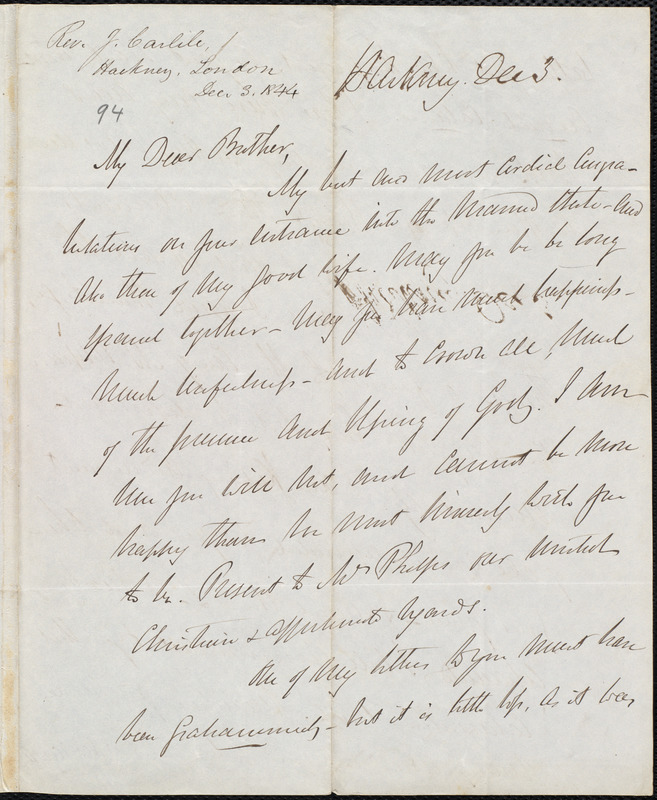 Rev. J. Carlile,
Hackney, London
Dec. 3. 1844
94
Hackney. Dec 3.
My Dear Brother,
My best and most cordial congra-
tulations on your entrance into the married state - and
also those of my good wife. May you be be long
spared together - may you have much happiness -
much usefulness - and to crown all, much
of the presence and blessing of God. I am
sure you will not, and cannot be more
happy than we most sincerely wish you
to be. Present to Mrs Phelps our united
Christian & affectionate regards.
One of my letters to you must have
been Grahammized - but it is little loss, as it was